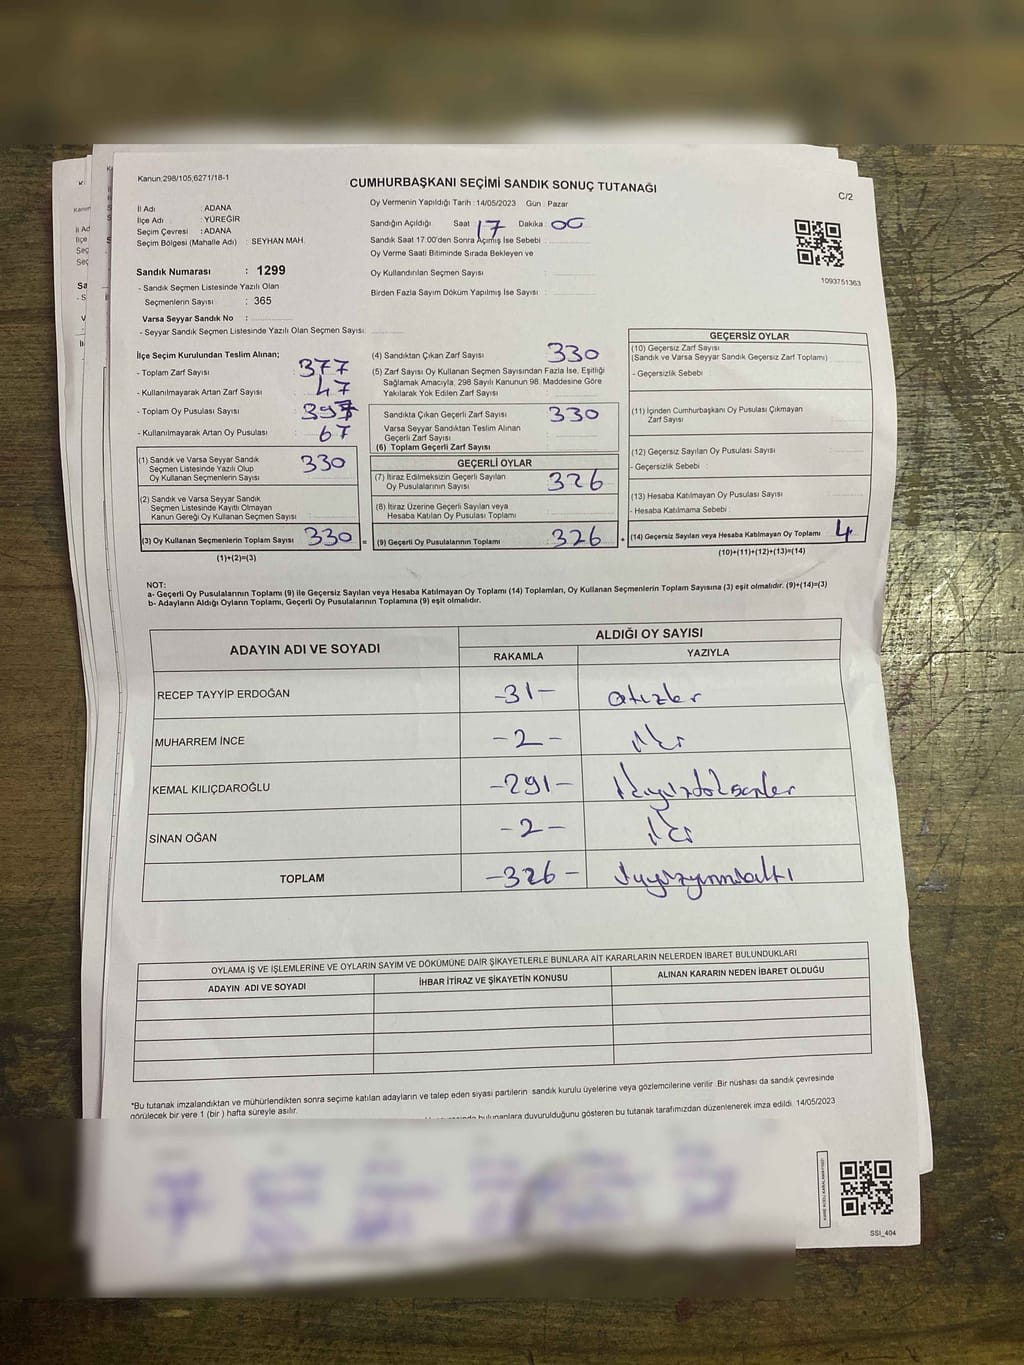 Kanun:298/105,6271/18-1
CUMHURBAŞKANI SEÇİMİ SANDIK SONUÇ TUTANAĞI
C/2
İl Adı : ADANA
İlçe Adı : YÜREĞİR
Seçim Çevresi : ADANA
Seçim Bölgesi (Mahalle Adı) : SEYHAN MAH.
Oy Vermenin Yapıldığı Tarih : 14/05/2023 Gün : Pazar
Sandığın Açıldığı Saat 17 Dakika 00
Sandık Saat 17.00'den Sonra Açılmış İse Sebebi :
Oy Verme Saati Bitiminde Sırada Bekleyen ve
Oy Kullandırılan Seçmen Sayısı :
Birden Fazla Sayım Döküm Yapılmış İse Sayısı :
1093751363
Sandık Numarası : 1299
- Sandık Seçmen Listesinde Yazılı Olan
Seçmenlerin Sayısı : 365
Varsa Seyyar Sandık No :
- Seyyar Sandık Seçmen Listesinde Yazılı Olan Seçmen Sayısı:
İlçe Seçim Kurulundan Teslim Alınan;
- Toplam Zarf Sayısı : 377
- Kullanılmayarak Artan Zarf Sayısı : 47
- Toplam Oy Pusulası Sayısı : 397
- Kullanılmayarak Artan Oy Pusulası : 67
(1) Sandık ve Varsa Seyyar Sandık
Seçmen Listesinde Yazılı Olup
Oy Kullanan Seçmen Sayısı : 330
(2) Sandık ve Varsa Seyyar Sandık
Seçmen Listesinde Kayıtlı Olmayan
Kanun Gereği Oy Kullanan Seçmen Sayısı :
(3) Oy Kullanan Seçmenlerin Toplam Sayısı : 330 =
(1)+(2)=(3)
(4) Sandıktan Çıkan Zarf Sayısı : 330
(5) Zarf Sayısı Oy Kullanan Seçmen Sayısından Fazla İse, Eşitliği
Sağlamak Amacıyla, 298 Sayılı Kanunun 98. Maddesine Göre
Yakılarak Yok Edilen Zarf Sayısı :
Sandıkta Çıkan Geçerli Zarf Sayısı : 330
Varsa Seyyar Sandıktan Teslim Alınan
Geçerli Zarf Sayısı :
(6) Toplam Geçerli Zarf Sayısı
GEÇERLİ OYLAR
(7) İtiraz Edilmeksizin Geçerli Sayılan
Oy Pusulalarının Sayısı : 326
(8) İtiraz Üzerine Geçerli Sayılan veya
Hesaba Katılan Oy Pusulası Toplamı :
(9) Geçerli Oy Pusulalarının Toplamı : 326 +
GEÇERSİZ OYLAR
(10) Geçersiz Zarf Sayısı
(Sandık ve Varsa Seyyar Sandık Geçersiz Zarf Toplamı) :
- Geçersizlik Sebebi :
(11) İçinden Cumhurbaşkanı Oy Pusulası Çıkmayan
Zarf Sayısı :
(12) Geçersiz Sayılan Oy Pusulası Sayısı :
- Geçersizlik Sebebi :
(13) Hesaba Katılmayan Oy Pusulası Sayısı :
- Hesaba Katılmama Sebebi :
(14) Geçersiz Sayılan veya Hesaba Katılmayan Oy Toplamı : 4
(10)+(11)+(12)+(13)=(14)
NOT:
a- Geçerli Oy Pusulalarının Toplamı (9) ile Geçersiz Sayılan veya Hesaba Katılmayan Oy Toplamı (14) Toplamları, Oy Kullanan Seçmenlerin Toplam Sayısına (3) eşit olmalıdır. (9)+(14)=(3)
b- Adayların Aldığı Oyların Toplamı, Geçerli Oy Pusulalarının Toplamına (9) eşit olmalıdır.
ADAYIN ADI VE SOYADI ALDIĞI OY SAYISI
RAKAMLA YAZIYLA
RECEP TAYYİP ERDOĞAN -31- otuzbir
MUHARREM İNCE -2- iki
KEMAL KILIÇDAROĞLU -291- ikiyüzdoksanbir
SİNAN OĞAN -2- iki
TOPLAM -326- üçyüzyirmialtı
OYLAMA İŞ VE İŞLEMLERİNE VE OYLARIN SAYIM VE DÖKÜMÜNE DAİR ŞİKAYETLERLE BUNLARA AİT KARARLARIN NELERDEN İBARET BULUNDUKLARI
ADAYIN ADI VE SOYADI İHBAR İTİRAZ VE ŞİKAYETİN KONUSU ALINAN KARARIN NEDEN İBARET OLDUĞU
*Bu tutanak imzalandıktan ve mühürlendikten sonra seçime katılan adayların ve talep eden siyasi partilerin sandık kurulu üyelerine veya gözlemcilerine verilir. Bir nüshası da sandık çevresinde
görülecek bir yere 1 (bir) hafta süreyle asılır.
bulunanlara duyurulduğunu gösteren bu tutanak tarafımızdan düzenlenerek imza edildi. 14/05/2023
SSI_404